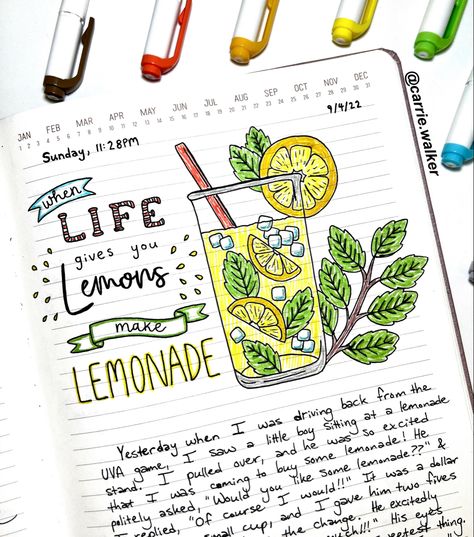 JAN FEB MAR APR MAY JUN JUL AUG SEP OCT NOV DEC
1 2 3 4 5 6 7 8 9 10 11 12 13 14 15 16 17 18 19 20 21 22 23 24 25 26 27 28 29 30 31
Sunday, 11:28PM
9/4/22
@carrie.walker_
when
LIFE
gives you
Lemons
make
LEMONADE
Yesterday when I was driving back from the
UVA game, I saw a little boy sitting at a lemonade
stand. I pulled over, and he was so excited
that I was coming to buy some lemonade! He
politely asked, "Would you like some lemonade??" &
I replied, "Of course I would!!" It was a dollar
small cup, and I gave him two fives
the change. He excitedly
much!!!" His eyes
sweetest thing.